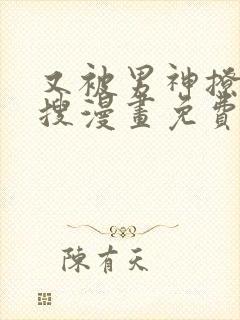 又被男神撩
搜漫畫免費
陳有天